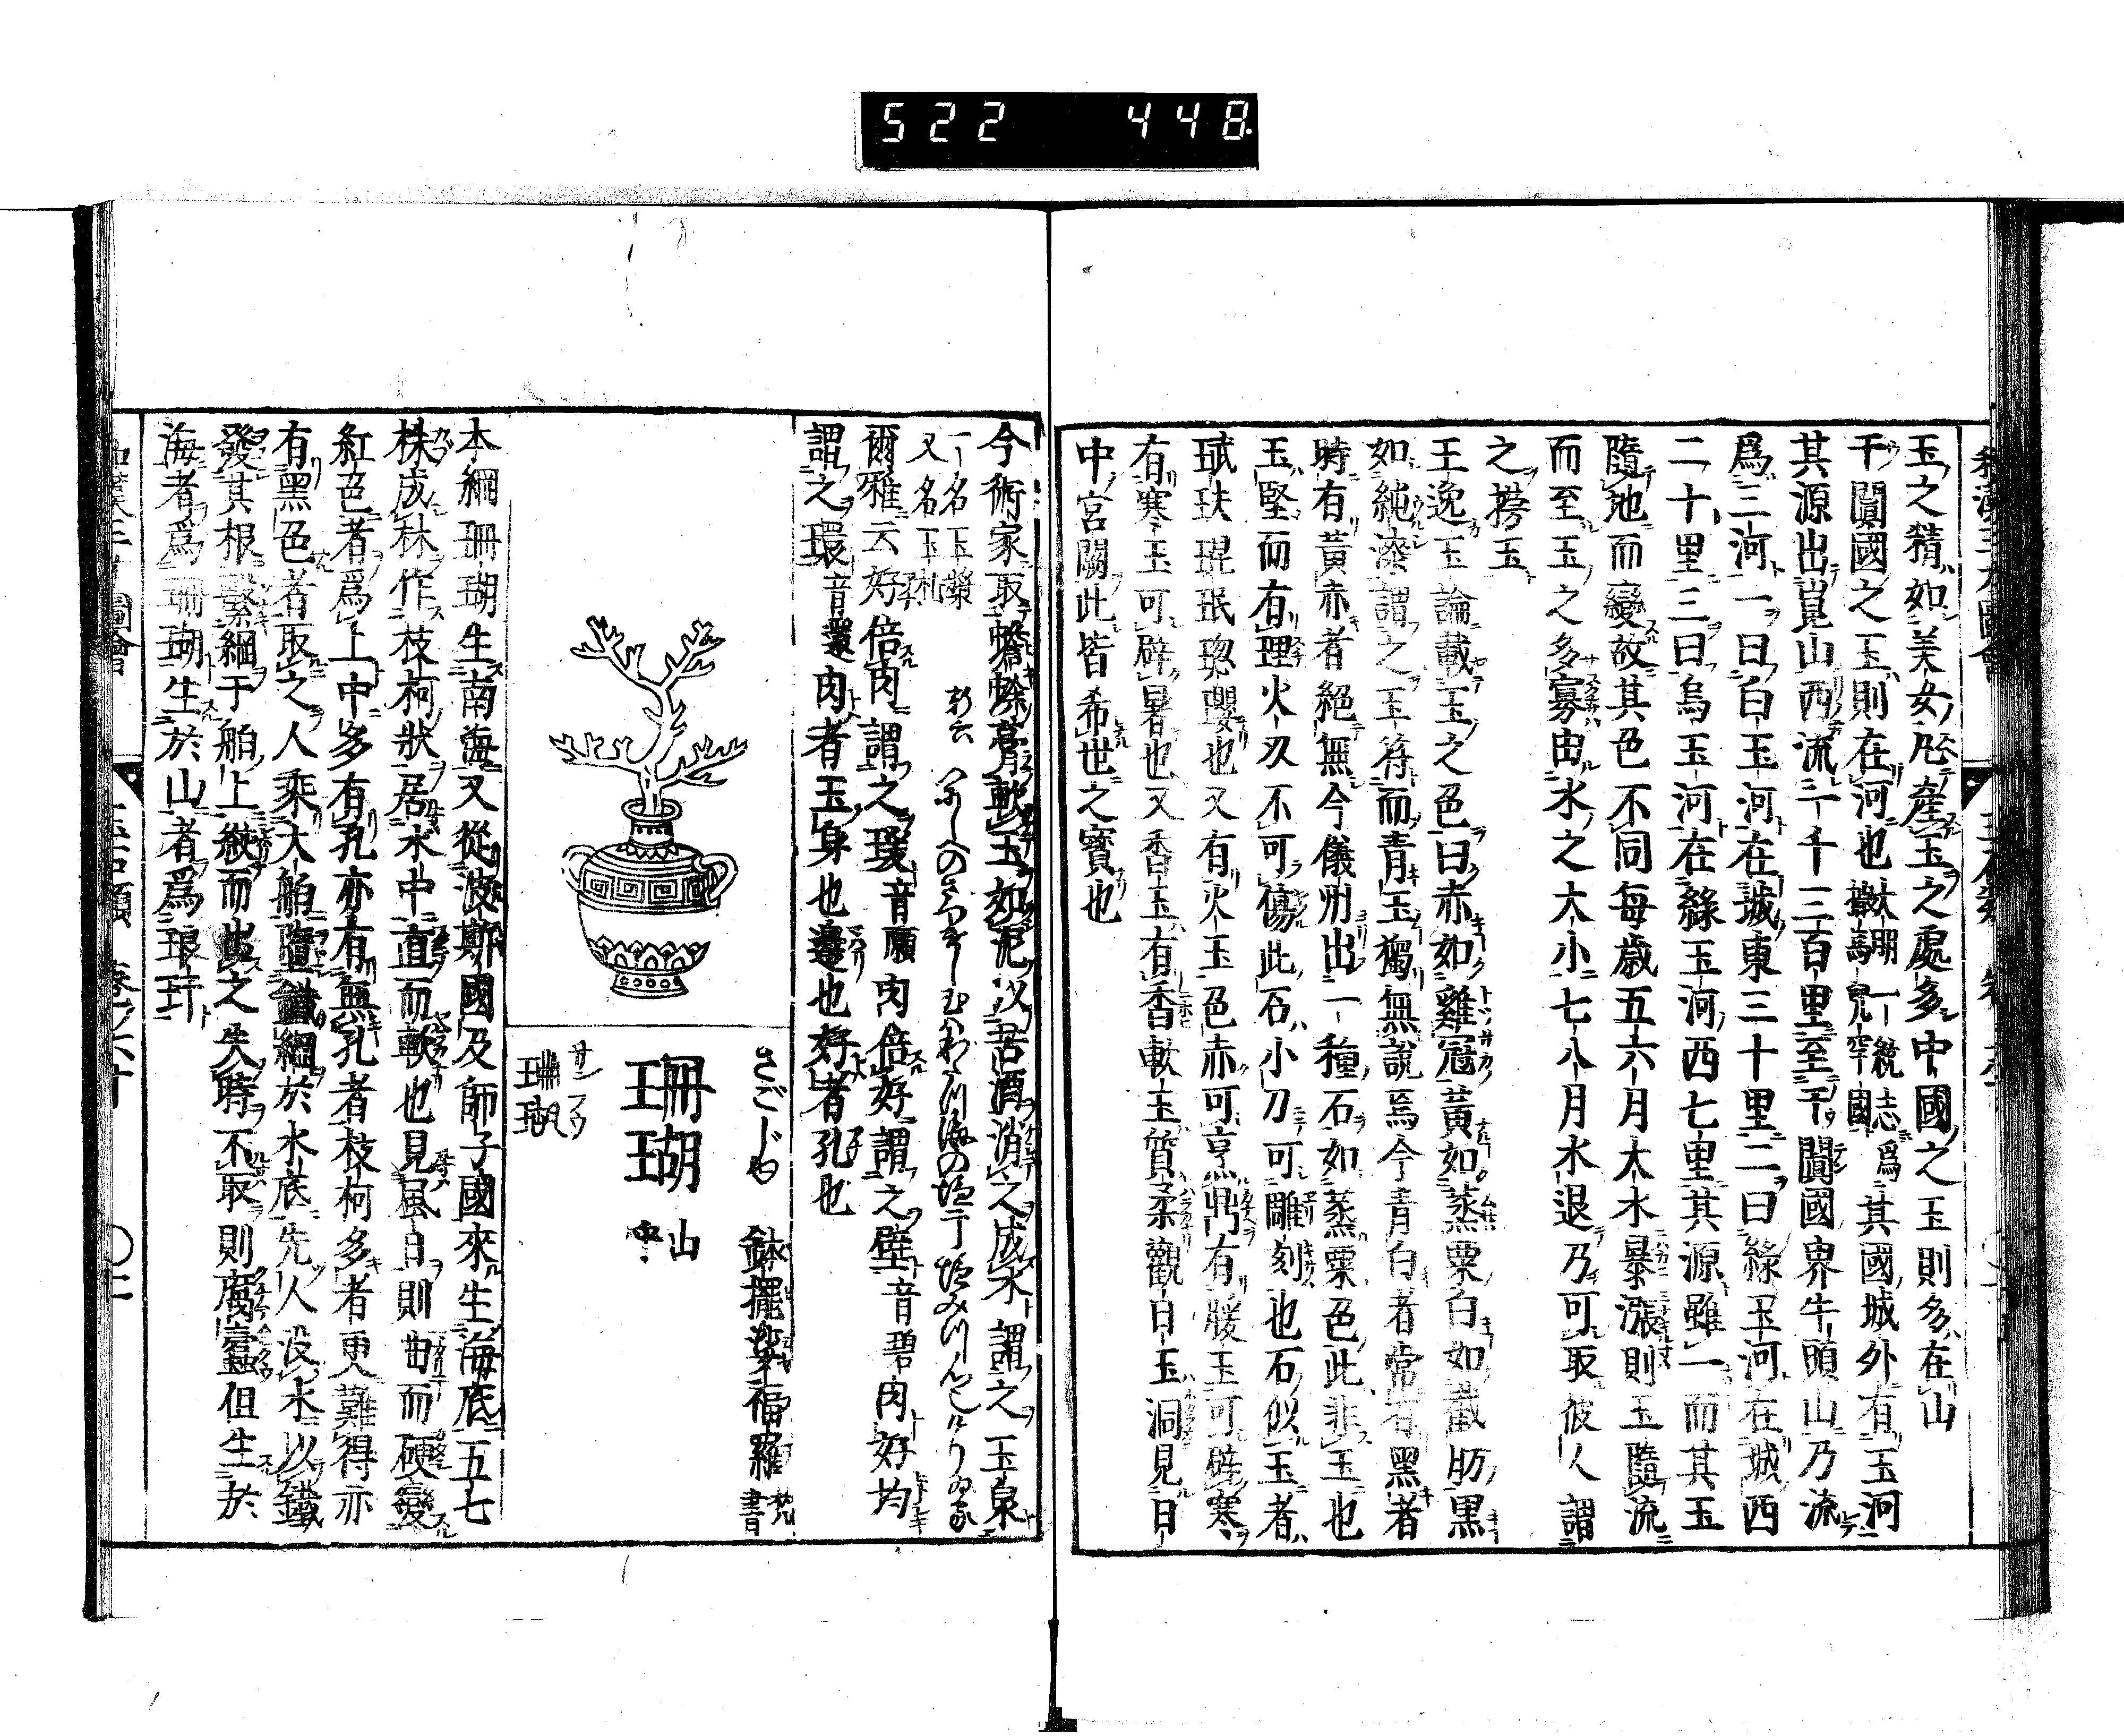 522 448
玉之精如美女凡產玉之處多中國之玉則多在山
于闐國之玉則在河也 其國城外有玉河
其源出崑山西流一千三百里至于闐國界牛頭山乃流
爲三河一曰白玉河在城東三十里二曰綠玉河在城西
二十里三曰烏玉河在綠玉河西七里其源雖一而其玉
隨地而變故其色不同每歲五六月大水暴漲則玉隨流
而至玉之多寡由水之大小七八月水退乃可取彼人謂
之撈玉
王逸玉論載玉之色曰赤如雞冠黃如蒸粟白如截肪黑
如純漆謂之玉符而青玉獨無說焉今青白者常有黑者
時有黃赤者絕無今儀州出一種石如蒸粟色此非玉也
玉堅而有理火刃不可傷此石小刀可雕刻也石似玉者
珷玞琨珉璁瓔也又有火玉色赤可烹鼎有暖玉可辟寒
有寒玉可辟暑也又香玉有香軟玉質柔觀日玉洞見日
中宮闕此皆希世之寶也
今術家取蟾蜍膏軟玉如泥以苦酒消之成水謂之玉泉
一名玉漿
又名玉札
爾雅云好倍肉謂之瑗音願肉倍好謂之璧音碧肉好均
謂之環音還肉者玉身也邊也好者孔也
さごじゆ
鉢擺娑福羅 梵書
珊瑚
サンフウ
本綱珊瑚生南海又從波斯國及師子國來生海底五七
株成林作枝柯狀居水中直而軟也見風日則曲而硬變
紅色者爲上中多有孔亦有無孔者枝柯多者更難得亦
有黑色者取之人乘大舶墮鐵網於水底先人沒水以鐵
發其根繫網于舶上絞而出之失時不取則腐蠹但生於
海者爲珊瑚生於山者爲琅玕